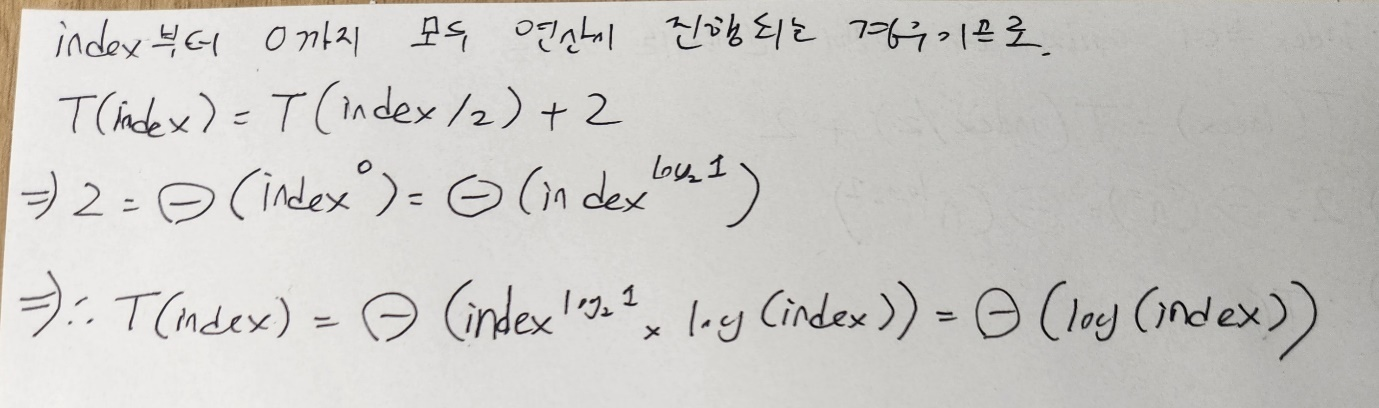 index부터 0까지 모두 연산이 진행되는 경우이므로.
T(index) = T(index/2) + 2
⇒ 2 = Θ(index⁰) = Θ(index^{log₂1})
⇒ ∴ T(index) = Θ(index^{log₂1} × log(index)) = Θ(log(index))